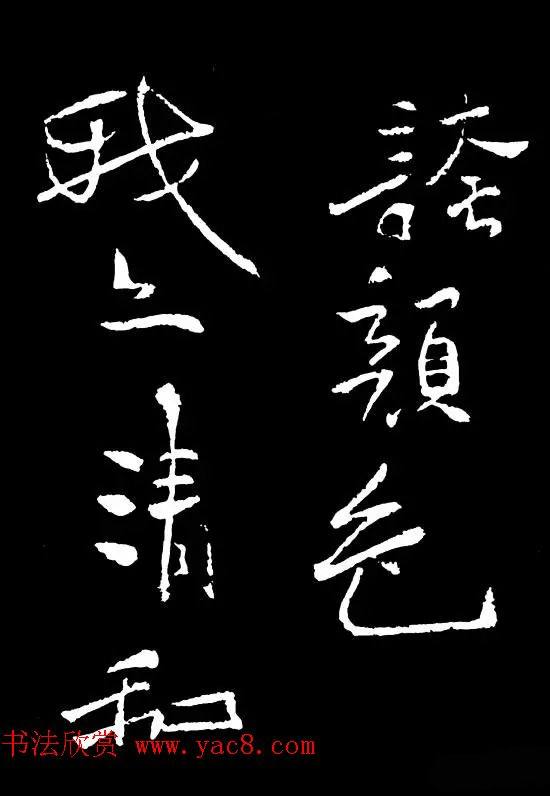 誇顔色
我之清和
书法欣赏 www.yac8.com